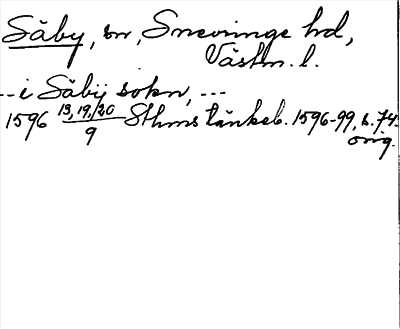 Säby, sn, Snevringe hd,
Västm. l.
-- i Säbij sokn, ---
1596 13, 19, 20/9 Sthms tänkeb. 1596-99, s. 74.
orig.